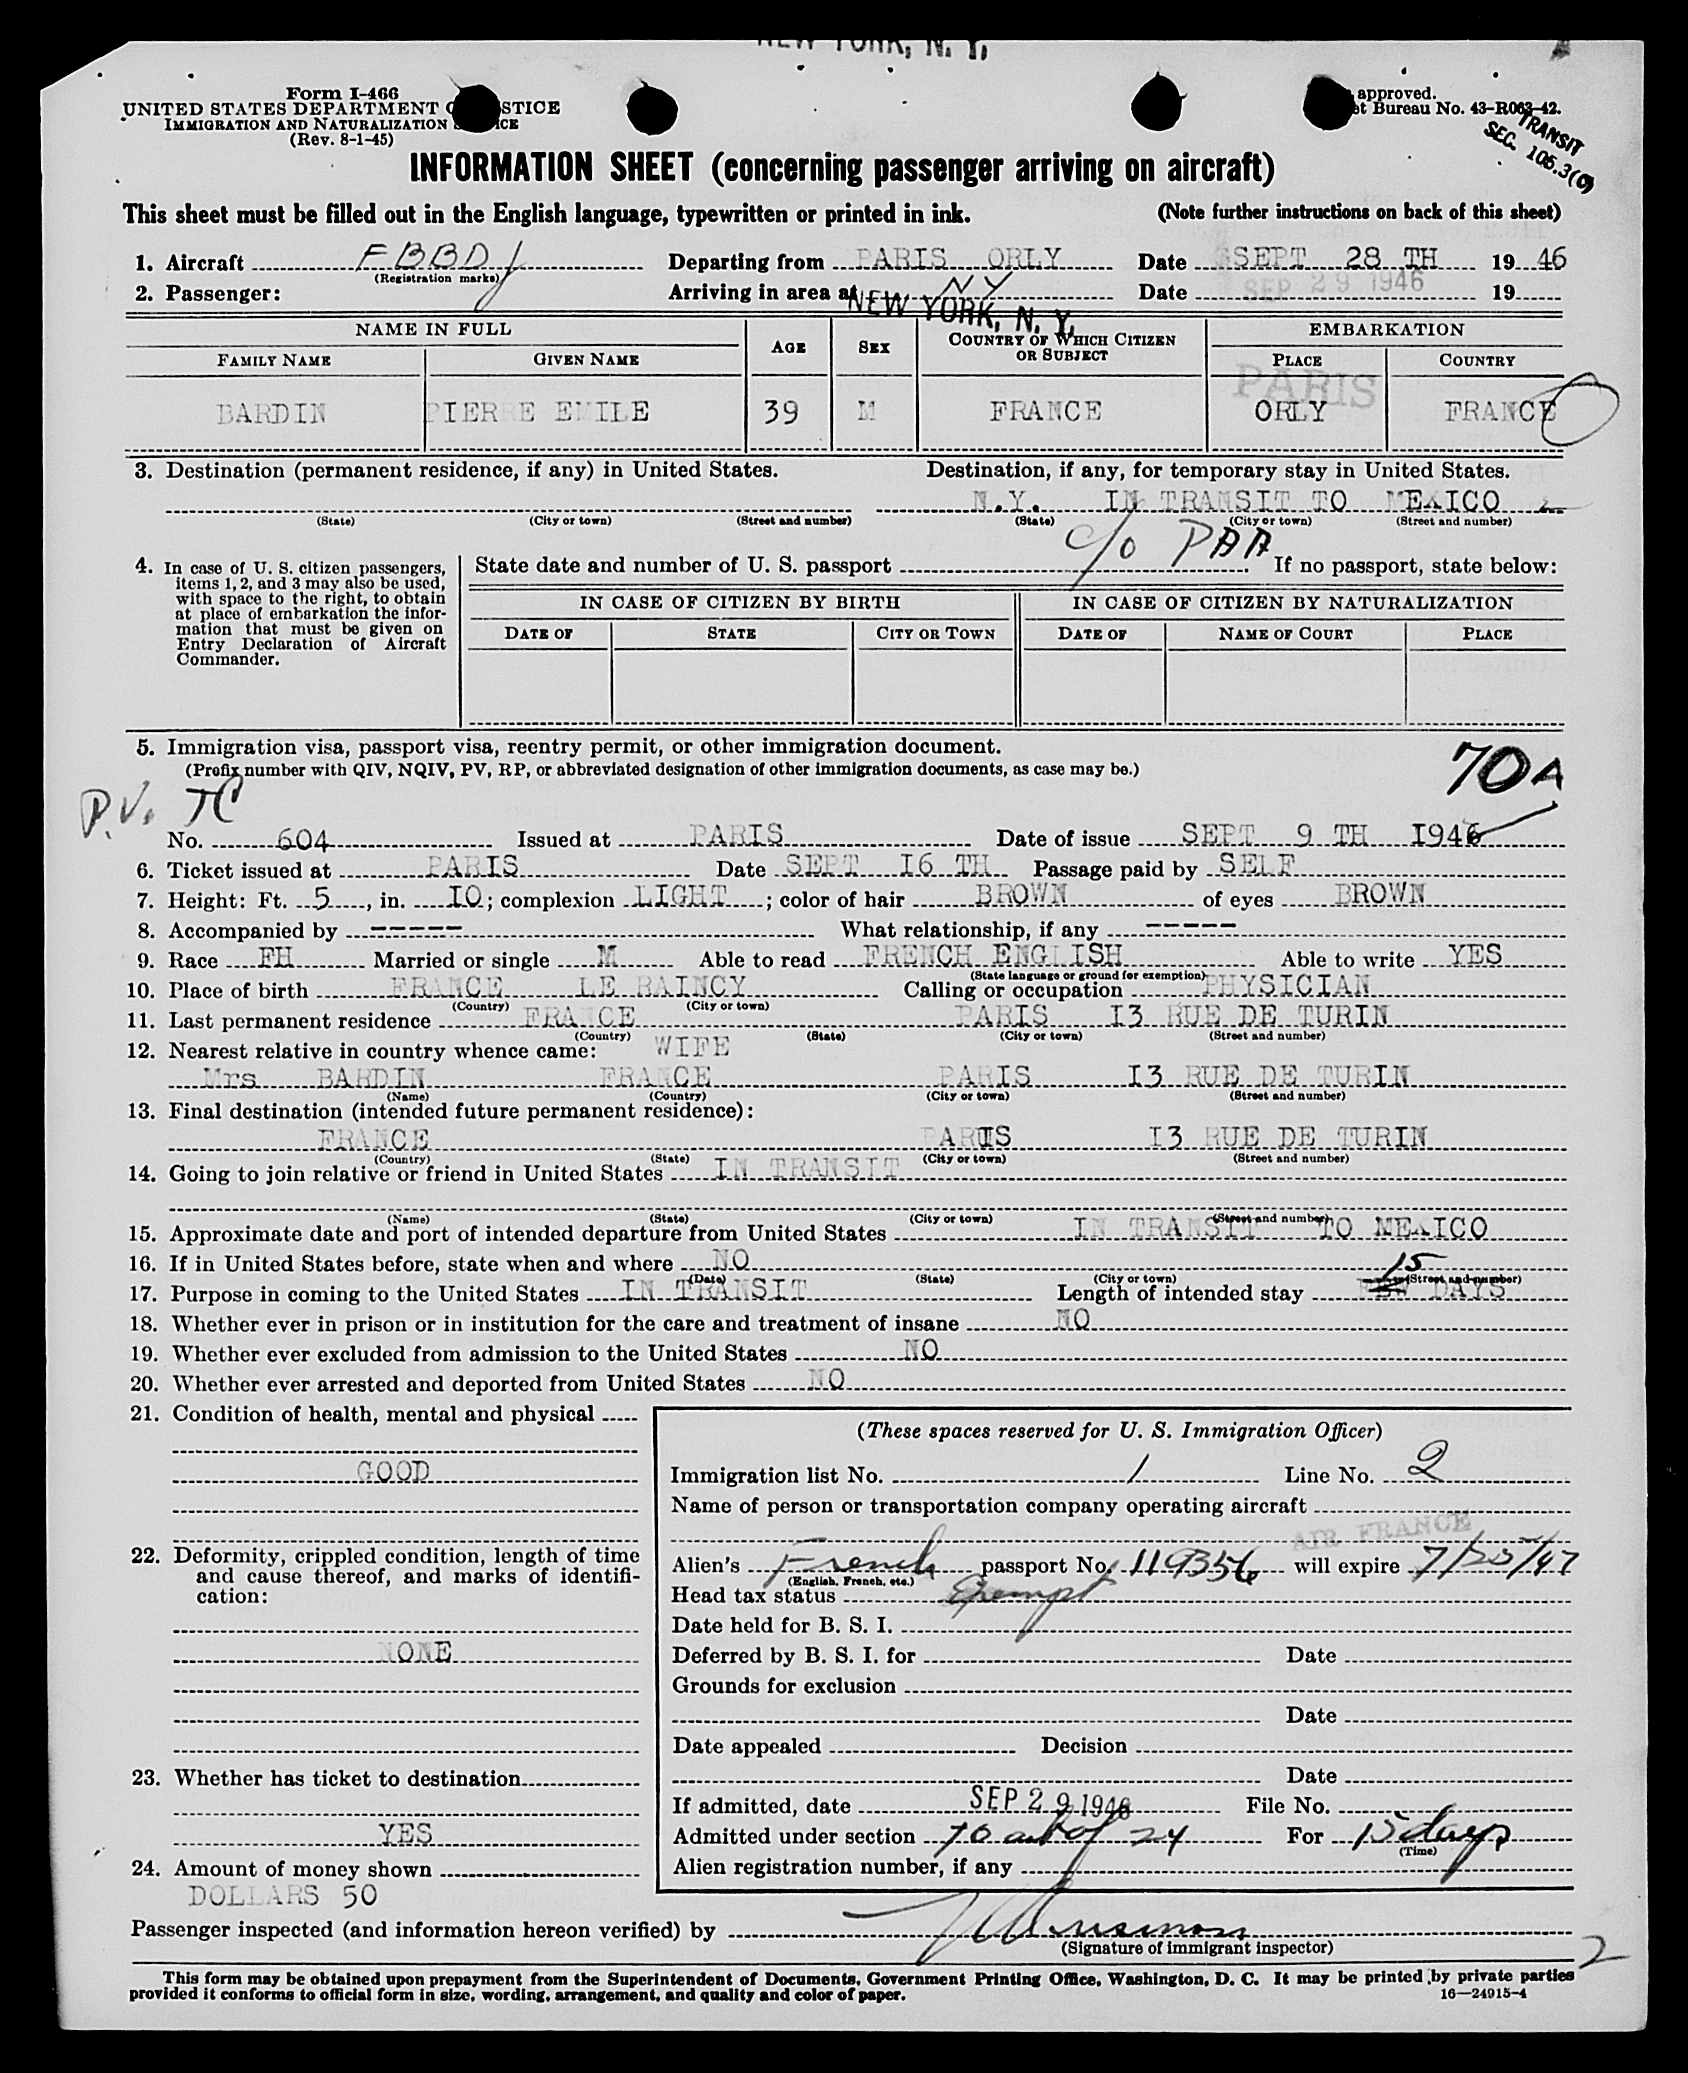 NEW YORK, N. Y.
Form I-466
UNITED STATES DEPARTMENT STICE
IMMIGRATION AND NATURALIZATION ICE
(Rev. 8-1-45)
approved.
et Bureau No. 43-R063-42.
TRANSIT
SEC. 105.3(C)
INFORMATION SHEET (concerning passenger arriving on aircraft)
This sheet must be filled out in the English language, typewritten or printed in ink. (Note further instructions on back of this sheet)
1. Aircraft FBBDJ Departing from PARIS ORLY Date SEPT 28 TH 19 46
(Registration marks)
2. Passenger: Arriving in area at NY Date SEP 29 1946 19
NEW YORK, N. Y.
NAME IN FULL AGE SEX COUNTRY OF WHICH CITIZEN OR SUBJECT EMBARKATION
FAMILY NAME GIVEN NAME PLACE COUNTRY
PARIS
BARDIN PIERRE EMILE 39 M FRANCE ORLY FRANCE
3. Destination (permanent residence, if any) in United States. Destination, if any, for temporary stay in United States.
N.Y. IN TRANSIT TO MEXICO
(State) (City or town) (Street and number) (State) (City or town) (Street and number)
c/o PAA
4. In case of U. S. citizen passengers, items 1, 2, and 3 may also be used, with space to the right, to obtain at place of embarkation the information that must be given on Entry Declaration of Aircraft Commander.
State date and number of U. S. passport If no passport, state below:
IN CASE OF CITIZEN BY BIRTH IN CASE OF CITIZEN BY NATURALIZATION
DATE OF STATE CITY OR TOWN DATE OF NAME OF COURT PLACE
5. Immigration visa, passport visa, reentry permit, or other immigration document.
(Prefix number with QIV, NQIV, PV, RP, or abbreviated designation of other immigration documents, as case may be.)
70A
P.V. TC
No. 604 Issued at PARIS Date of issue SEPT 9 TH 1946
6. Ticket issued at PARIS Date SEPT 16 TH Passage paid by SELF
7. Height: Ft. 5, in. IO; complexion LIGHT; color of hair BROWN of eyes BROWN
8. Accompanied by ----- What relationship, if any -----
9. Race FH Married or single M Able to read FRENCH ENGLISH Able to write YES
(State language or ground for exemption)
10. Place of birth FRANCE LE RAINCY Calling or occupation PHYSICIAN
(Country) (City or town)
11. Last permanent residence FRANCE PARIS I3 RUE DE TURIN
(Country) (State) (City or town) (Street and number)
12. Nearest relative in country whence came: WIFE
Mrs BARDIN FRANCE PARIS I3 RUE DE TURIN
(Name) (Country) (City or town) (Street and number)
13. Final destination (intended future permanent residence):
FRANCE PARIS I3 RUE DE TURIN
(Country) (State) (City or town) (Street and number)
14. Going to join relative or friend in United States IN TRANSIT
(Name) (State) (City or town) (Street and number)
15. Approximate date and port of intended departure from United States IN TRANSIT TO MEXICO
16. If in United States before, state when and where NO
(Date) (State) (City or town) (Street and number)
15
17. Purpose in coming to the United States IN TRANSIT Length of intended stay FEW DAYS
18. Whether ever in prison or in institution for the care and treatment of insane NO
19. Whether ever excluded from admission to the United States NO
20. Whether ever arrested and deported from United States NO
21. Condition of health, mental and physical
GOOD
22. Deformity, crippled condition, length of time and cause thereof, and marks of identification:
NONE
23. Whether has ticket to destination
YES
24. Amount of money shown
DOLLARS 50
(These spaces reserved for U. S. Immigration Officer)
Immigration list No. 1 Line No. 2
Name of person or transportation company operating aircraft
AIR FRANCE
Alien's French passport No. 119356 will expire 7/25/47
(English, French, etc.)
Head tax status Exempt
Date held for B. S. I.
Deferred by B. S. I. for Date
Grounds for exclusion
Date
Date appealed Decision
Date
If admitted, date SEP 29 1946 File No.
Admitted under section 70 act of 24 For 15 days
(Time)
Alien registration number, if any
Passenger inspected (and information hereon verified) by
(Signature of immigrant inspector)
2
This form may be obtained upon prepayment from the Superintendent of Documents, Government Printing Office, Washington, D. C. It may be printed by private parties
provided it conforms to official form in size, wording, arrangement, and quality and color of paper. 16—24915-4